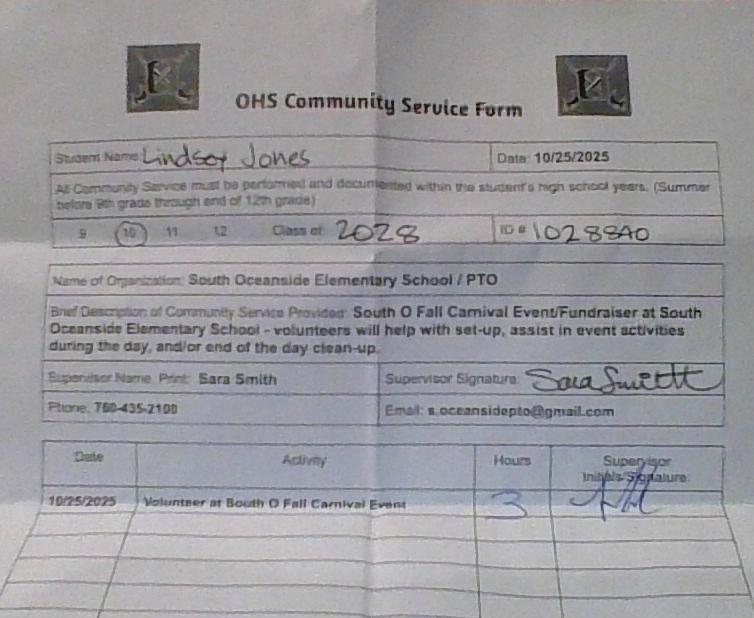 OHS Community Service Form
Student Name: Lindsey Jones Date: 10/25/2025
All Community Service must be performed and documented within the student's high school years. (Summer
before 9th grade through end of 12th grade)
9 10 11 12 Class of 2028 ID # 1028840
Name of Organization: South Oceanside Elementary School / PTO
Brief Description of Community Service Provided: South O Fall Carnival Event/Fundraiser at South
Oceanside Elementary School - volunteers will help with set-up, assist in event activities
during the day, and/or end of the day clean-up.
Supervisor Name, Print: Sara Smith Supervisor Signature: Sara Smith
Phone: 760-435-2100 Email: s.oceansidepto@gmail.com
Date Activity Hours Supervisor
Initials/Signature
10/25/2025 Volunteer at South O Fall Carnival Event 3